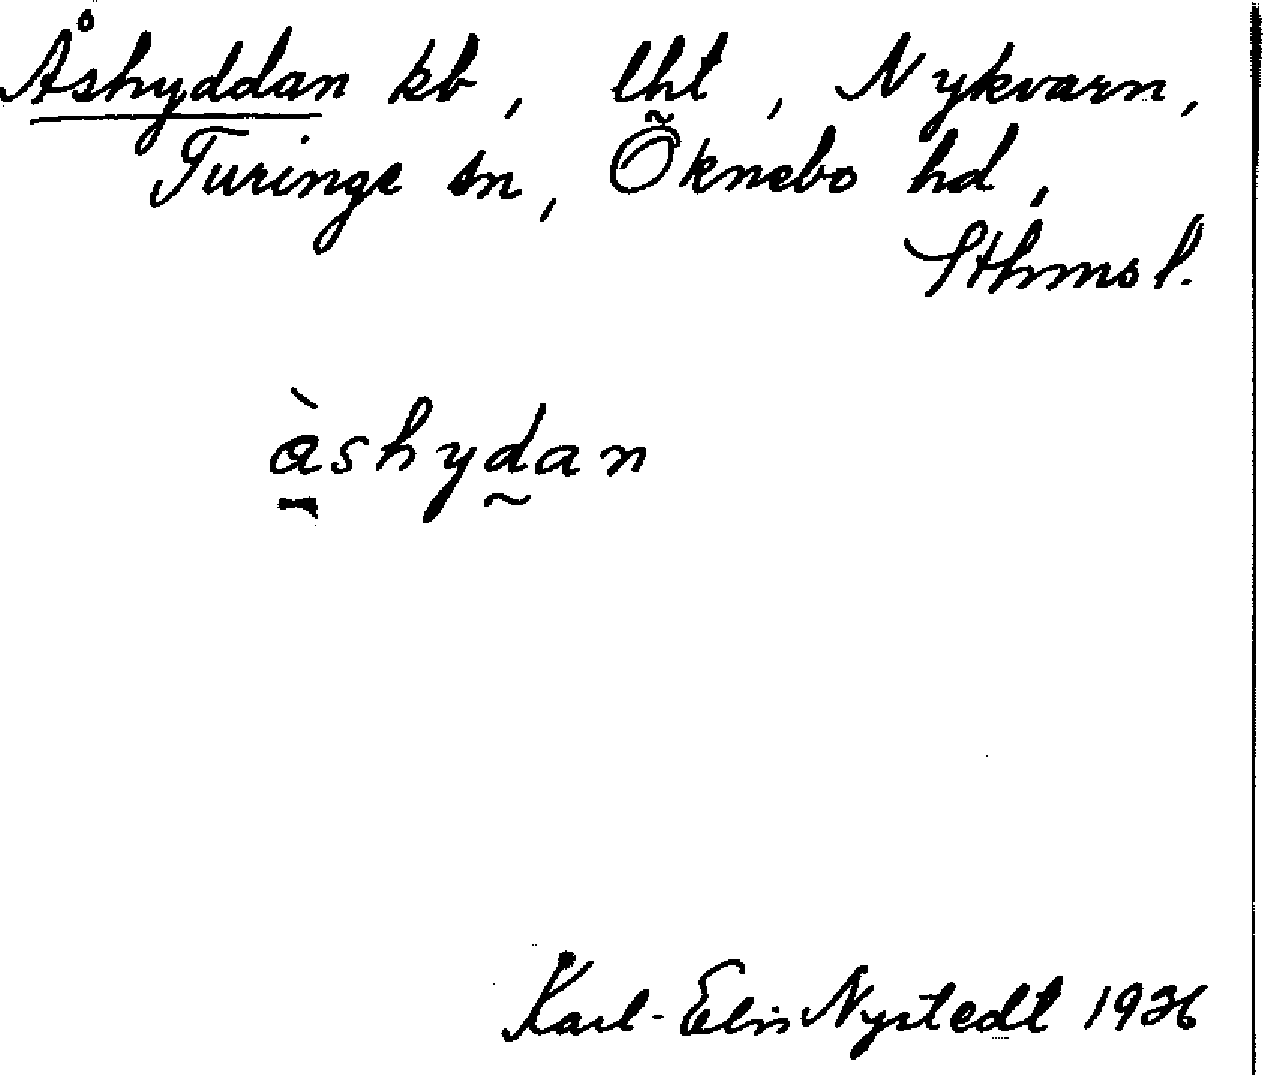 Åshyddan kb, lht, Nykvarn,
Turinge sn, Öknebo hd,
Sthms l.
àshydan
Karl-Elis Nystedt 1936